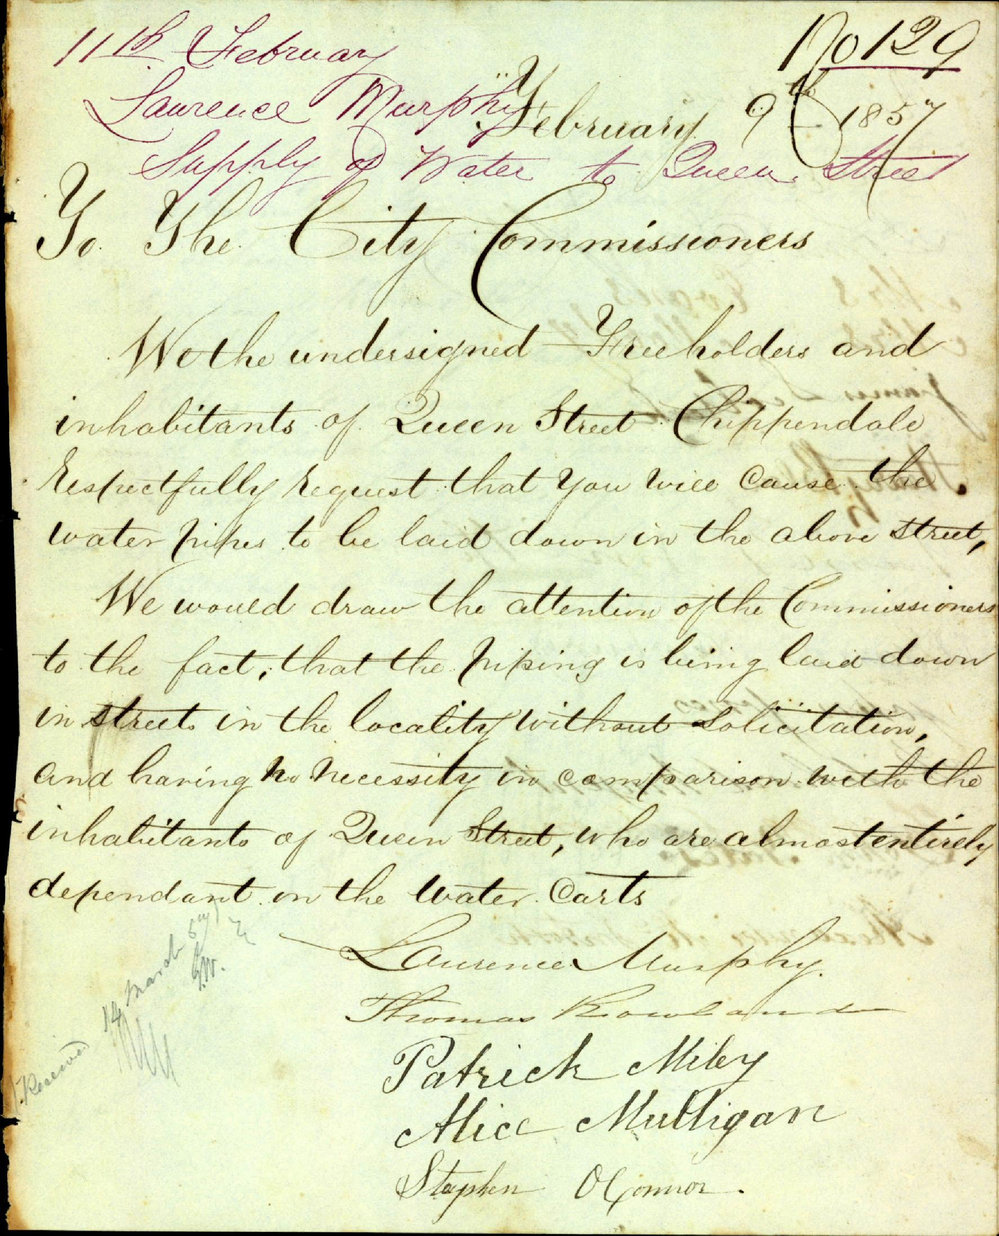 No 129
11th February
Laurence Murphy
Supply of Water to Queen Street
February 9th 1857
To The City Commissioners
We the undersigned Freeholders and
inhabitants of Queen Street Chippendale
respectfully request that you will cause the
water pipes to be laid down in the above street,
We would draw the attention of the Commissioners
to the fact, that the piping is being laid down
in streets in the locality without solicitation,
and having no necessity in comparison with the
inhabitants of Queen Street, who are almost entirely
dependant on the water carts
Laurence Murphy.
Thomas Rowland
Patrick Miley
Alice Mulligan
Stephen OConnor.
Received 14 March